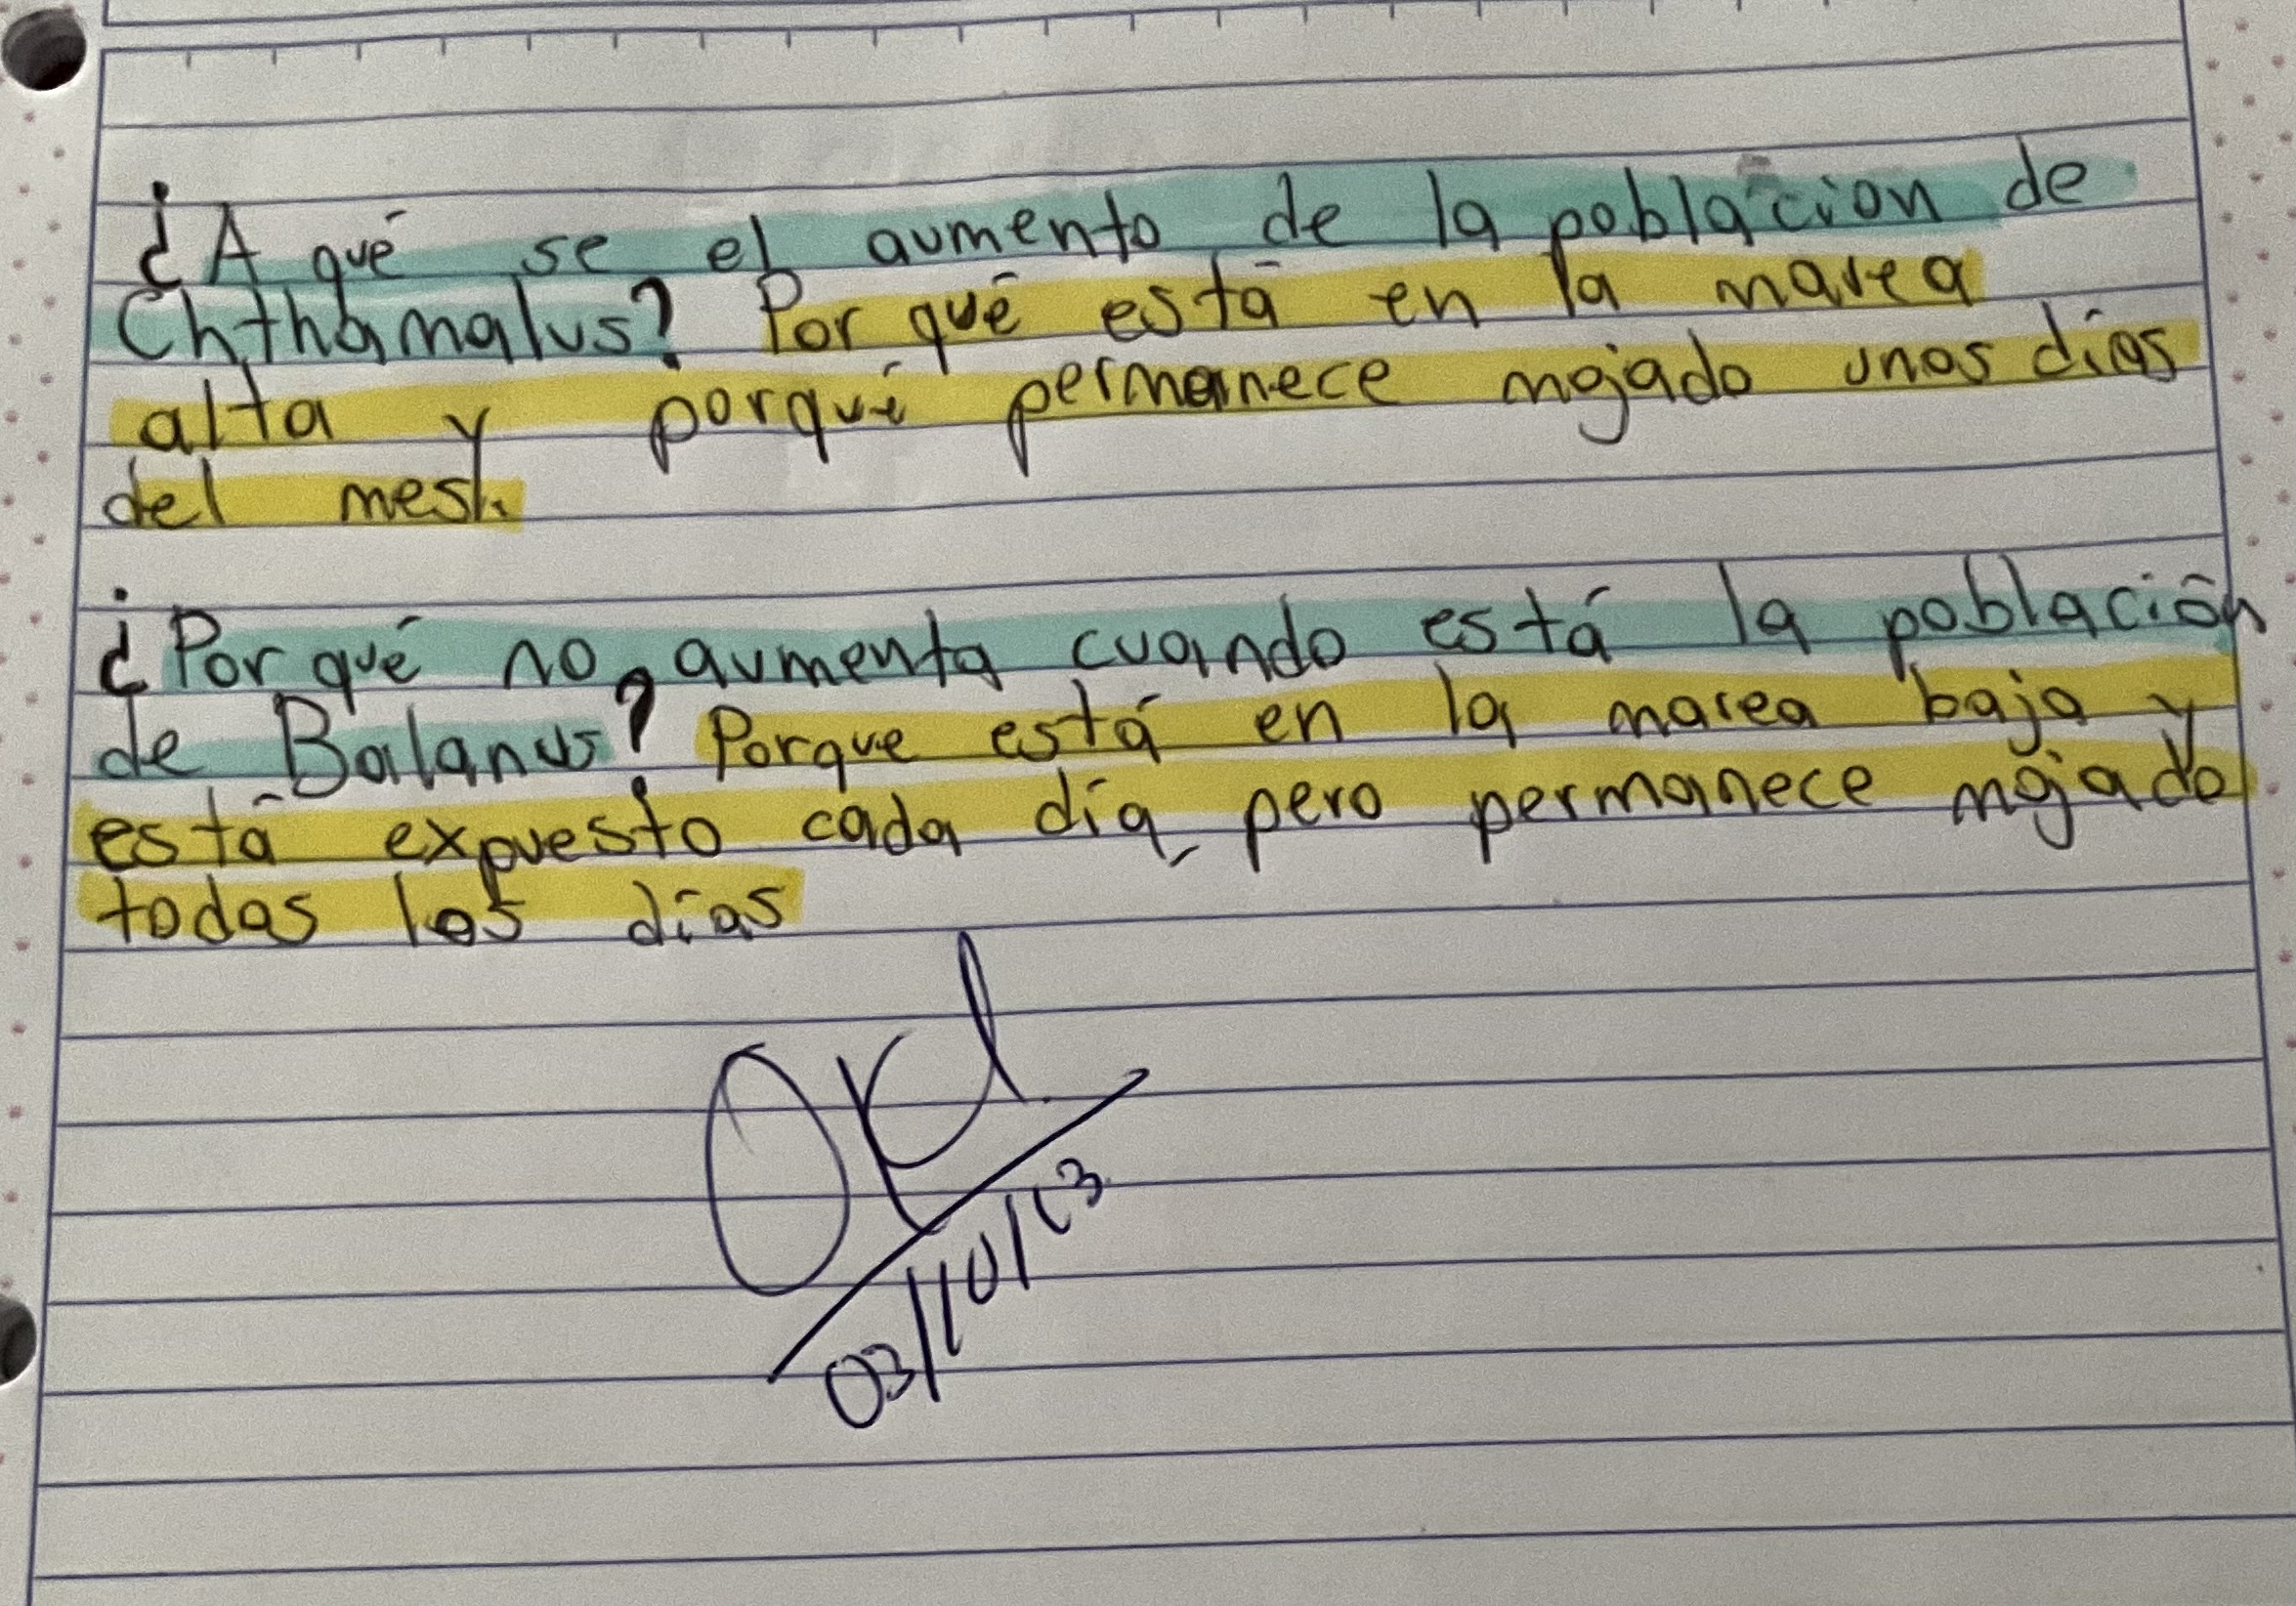 ¿A qué se el aumento de la población de
Chthamalus? Por qué está en la marea
alta y porqué permanece mojado unos días
del mes.
¿Por qué no aumenta cuando está la población
de Balanus? Porque está en la marea baja y
está expuesto cada día, pero permanece mojado
todos los días
03/10/23